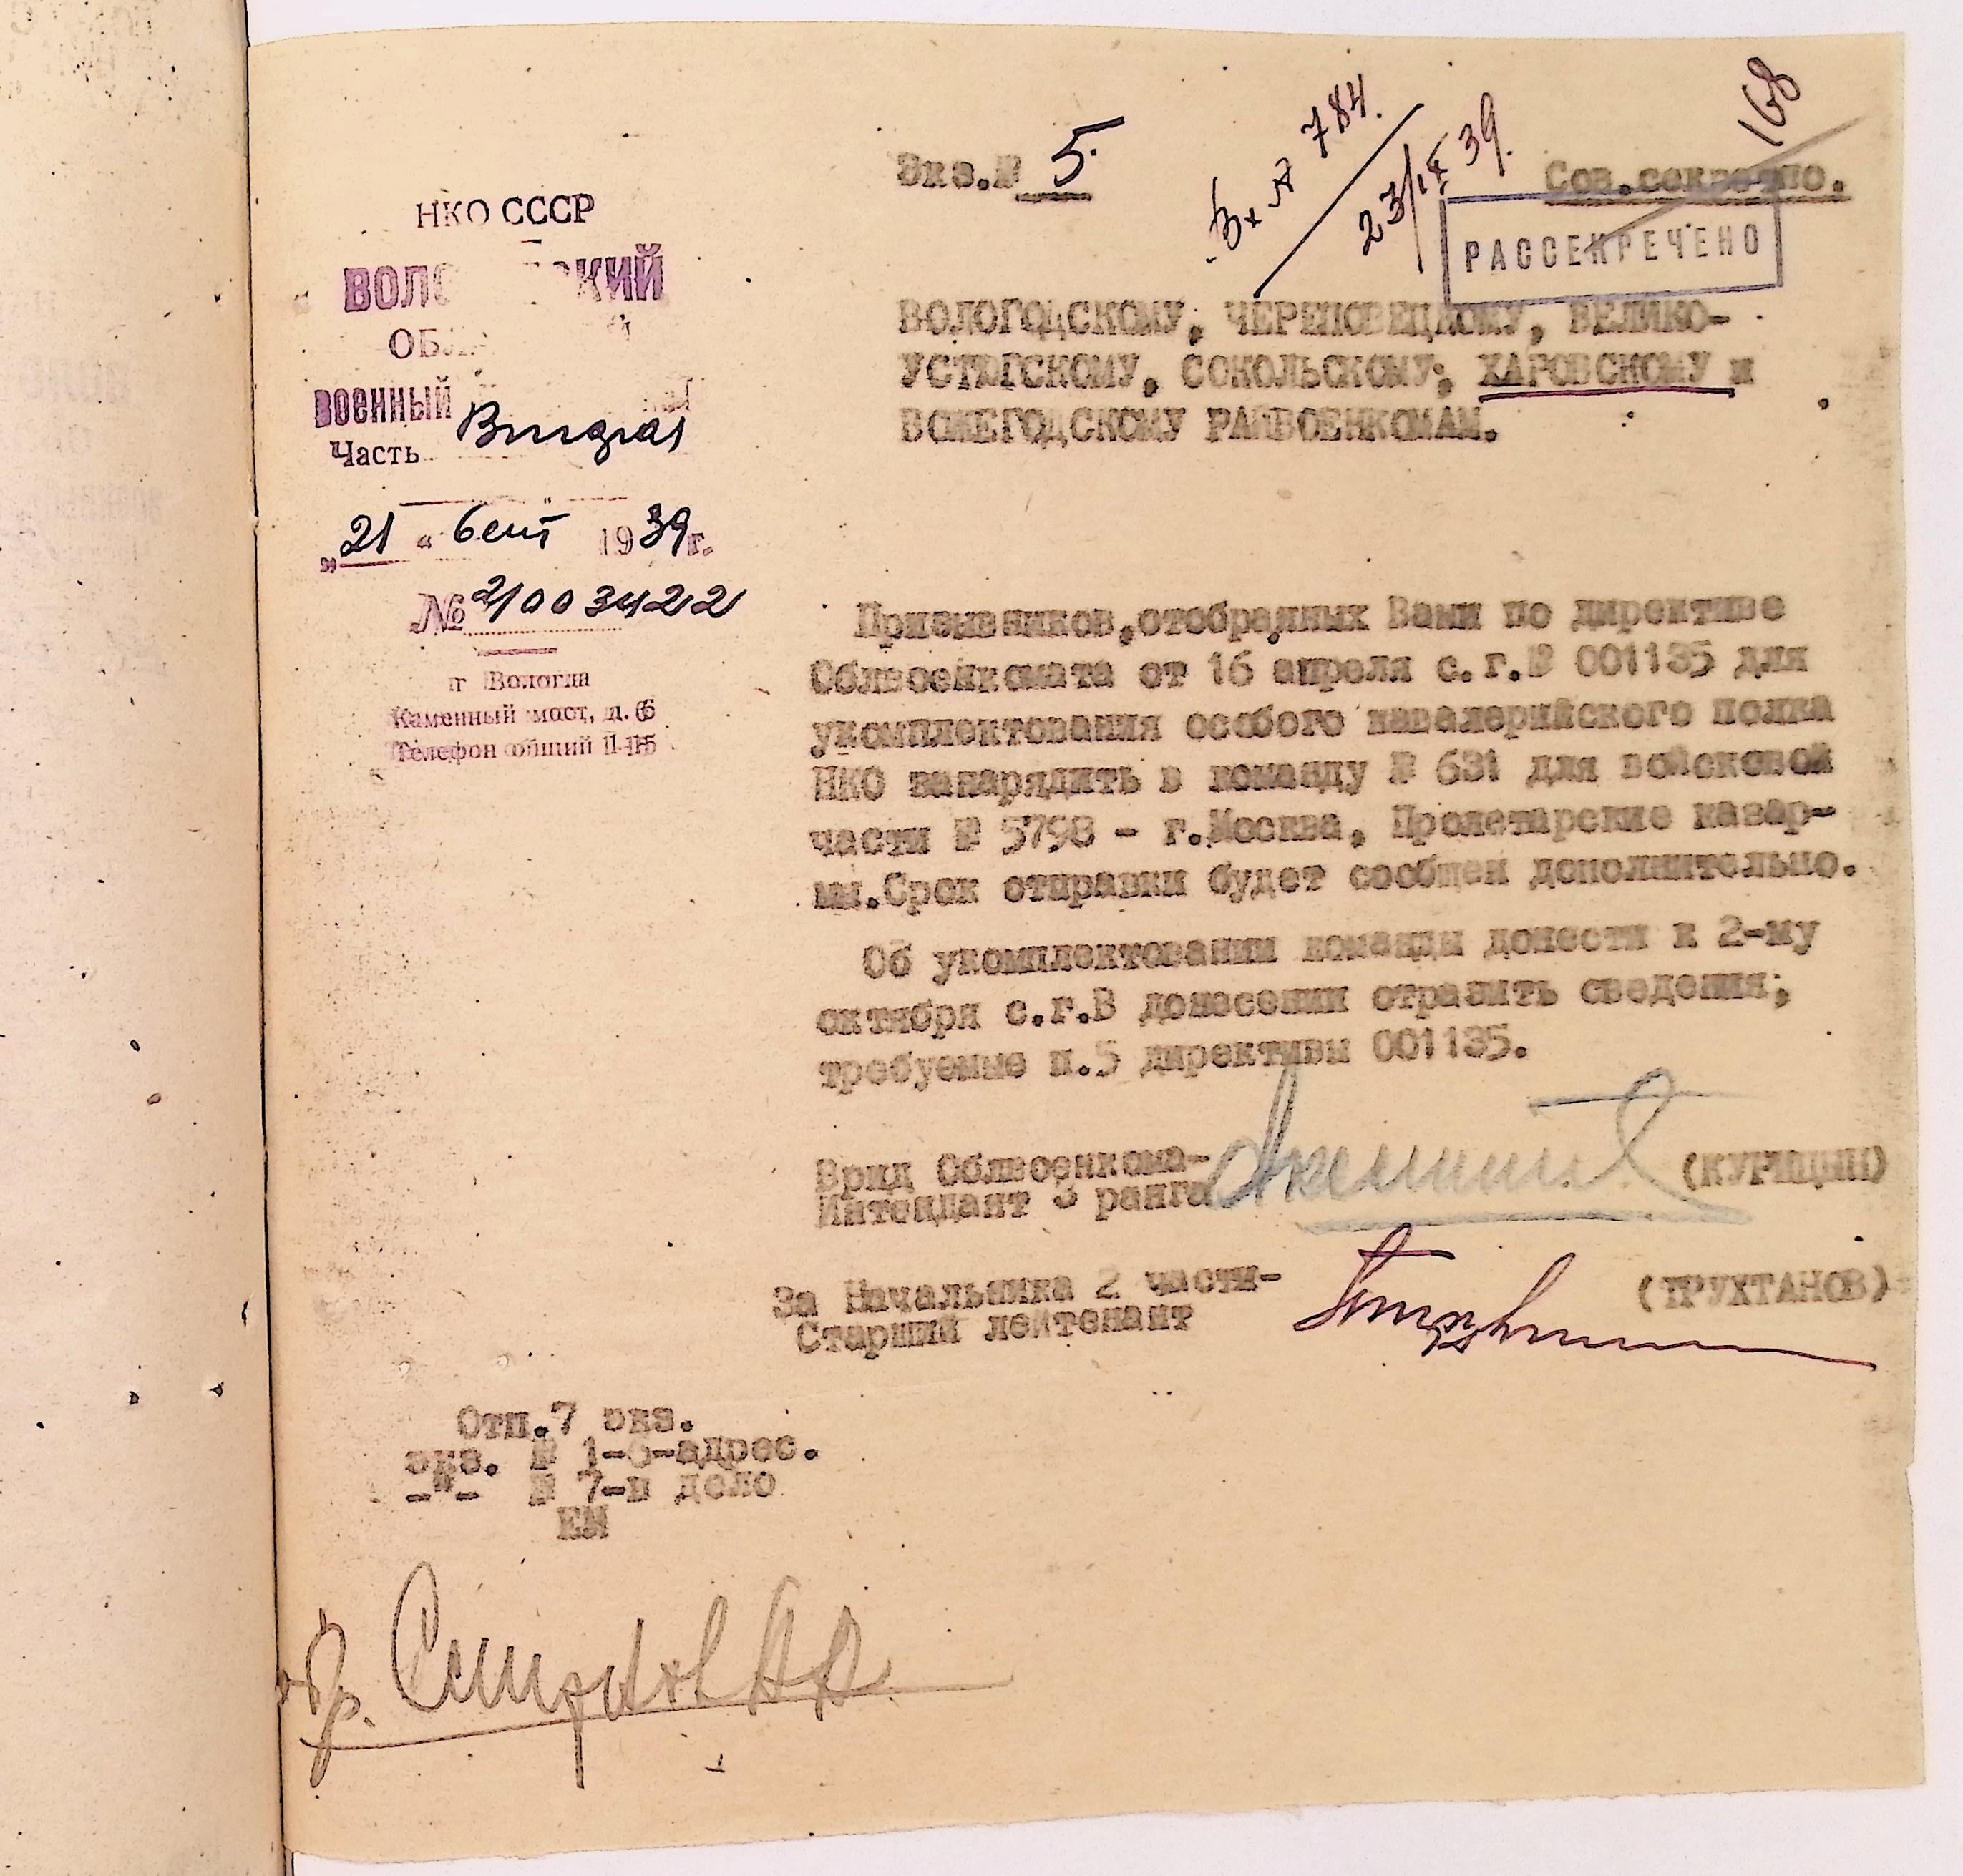 168
Экз.№ 5.
Вх № 784.
23/IX 39.
Сов.секретно.
РАССЕКРЕЧЕНО
НКО СССР
ВОЕННЫЙ
Часть Вторая
„21“ сент 1939 г.
№ 2/003422
г Вологда
Каменный мост, д. 6
Телефон общий 1-15
ВОЛОГОДСКОМУ, ЧЕРЕПОВЕЦКОМУ, ВЕЛИКО-
УСТЮГСКОМУ, СОКОЛЬСКОМУ, ХАРОВСКОМУ и
ВОЖЕГОДСКОМУ РАЙВОЕНКОМАМ.
Призывников,отобранных Вами по директиве
Облвоенкомата от 16 апреля с.г.№ 001135 для
укомплектования особого кавалерийского полка
НКО занарядить в команду № 631 для войсковой
части № 5798 - г.Москва, Пролетарские казар-
мы.Срок отправки будет сообщен дополнительно.
Об укомплектовании команды донести к 2-му
октября с.г.В донесении отразить сведения,
требуемые п.5 директивы 001135.
Врид Облвоенкома-
Интендант 3 ранга (КУРИЦЫН)
За Начальника 2 части-
Старший лейтенант (ТРУХТАНОВ)
Отп.7 экз.
экз. № 1-6-адрес.
-"- № 7-в дело
ЕМ
Смирнов